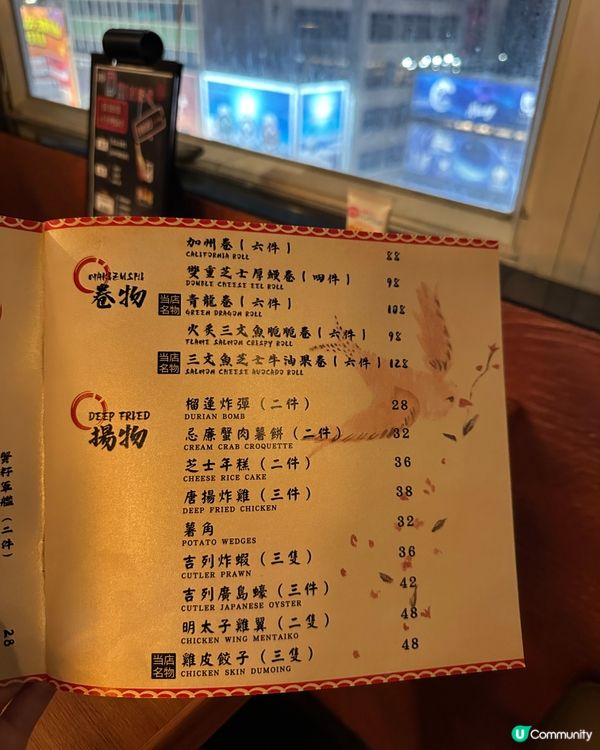 MAKIZUSHI
卷物
加州卷(六件) 88
CALIFORNIA ROLL
雙重芝士厚鰻卷(四件) 98
DOUBLE CHEESE EEL ROLL
当店名物
青龍卷(六件) 108
GREEN DRAGON ROLL
火炙三文魚脆脆卷(六件) 98
FLAME SALMON CRISPY ROLL
当店名物
三文魚芝士牛油果卷(六件) 128
SALMON CHEESE AVOCADO ROLL
DEEP FRIED
揚物
榴蓮炸彈(二件) 28
DURIAN BOMB
忌廉蟹肉薯餅(二件) 32
CREAM CRAB CROQUETTE
芝士年糕(二件) 36
CHEESE RICE CAKE
唐揚炸雞(三件) 38
DEEP FRIED CHICKEN
薯角 32
POTATO WEDGES
吉列炸蝦(三隻) 36
CUTLER PRAWN
吉列廣島蠔(三件) 42
CUTLER JAPANESE OYSTER
明太子雞翼(二隻) 48
CHICKEN WING MENTAIKO
当店名物
雞皮餃子(三隻) 48
CHICKEN SKIN DUMOING
軍艦(二件)
28
U Community